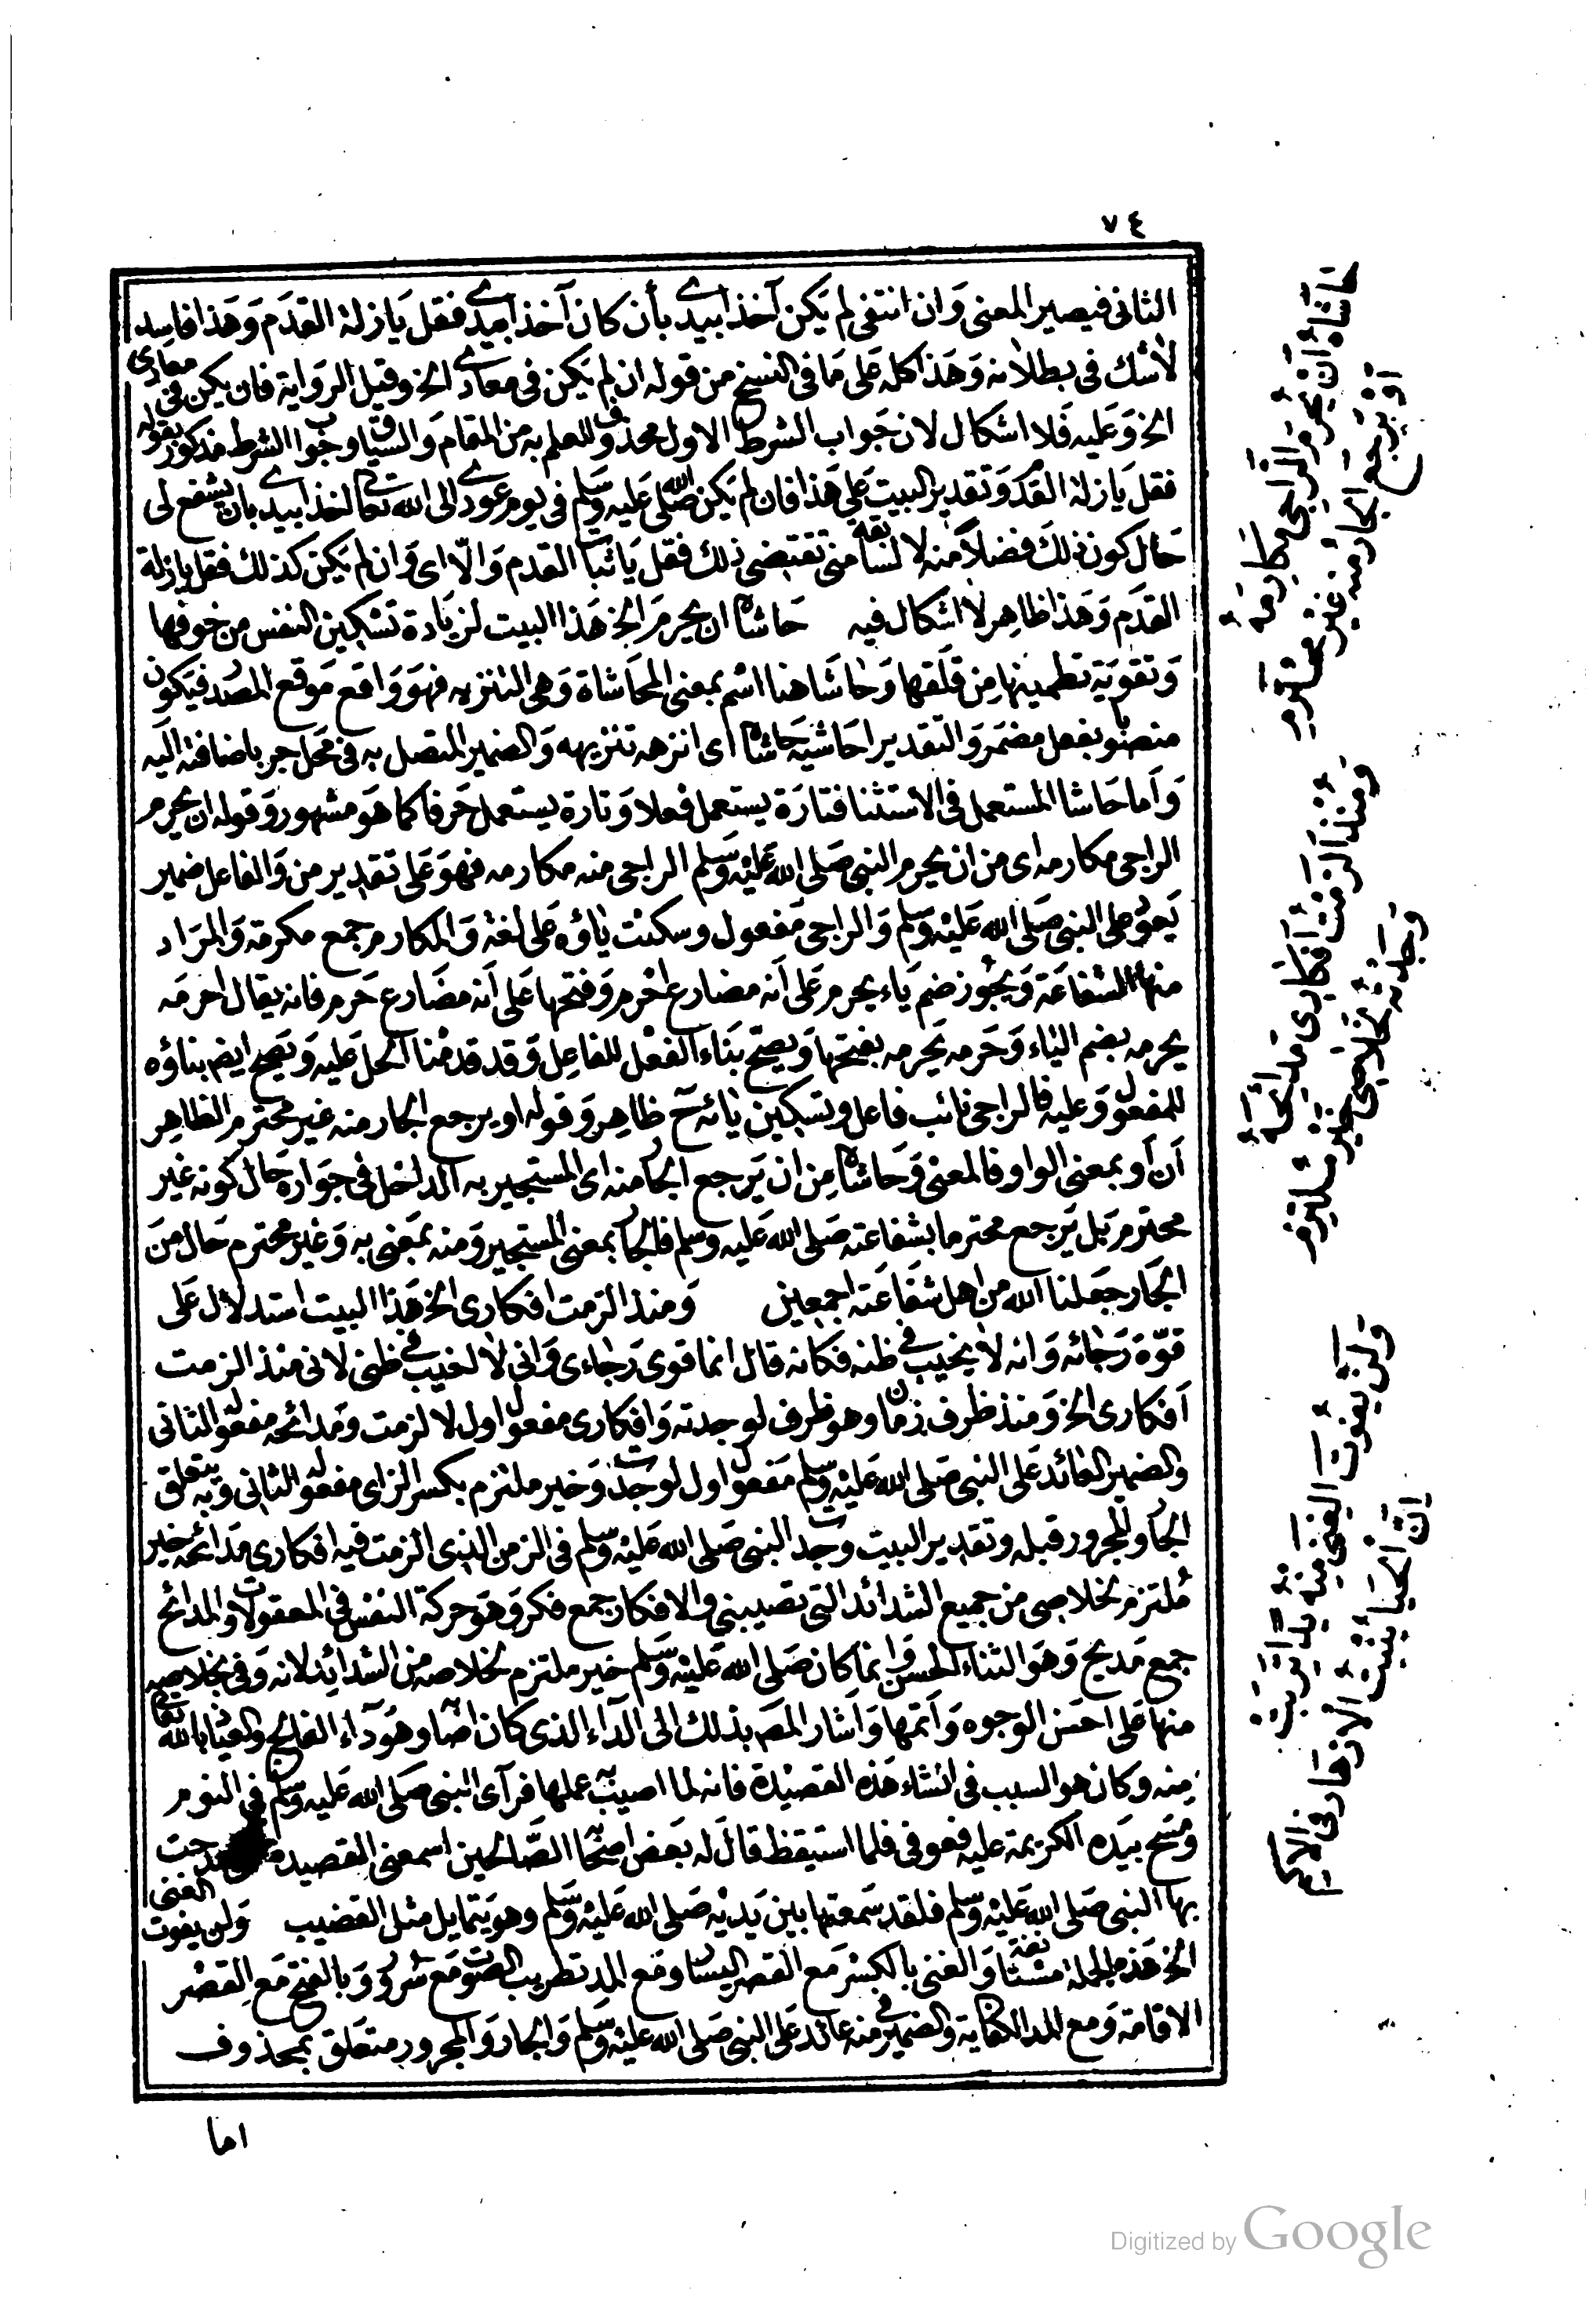 ٧٤
الثانى فيصير المعنى وان انتفى لم يكن آخذا بيدى بأن كان آخذا بيدى فقل يازلة القدم وهذا فاسد
لاشك فى بطلانه وهذا كله على ما فى النسخ من قوله ان لم يكن فى معادى الخ وقيل الرواية فان يكن فى معادى
الخ وعليه فلا اشكال لان جواب الشرط الاول محذوف للعلم به من المقام والسياق وجواب الشرط مذكور بقوله
فقل يازلة القدم وتقدير البيت على هذا فان لم يكن صلى الله عليه وسلم فى يوم عودى الى الله تعالى اخذا بيدى بان يشفع لى
حال كون ذلك فضلا منه لا لسابقة منى تقتضى ذلك فقل يا ثبات القدم والّا اى وان لم يكن كذلك فقل يازلة
القدم وهذا ظاهر لا اشكال فيه حاشاه ان يحرم الخ هذا البيت لزيادة تسكين النفس من خوفها
وتقوية تطمينها من قلقها وحاشا هنا اسم بمعنى المحاشاة وهى التنزيه فهو واقع موقع المصدر فيكون
منصوبا بفعل مضمر والتقدير احاشيه حاشاه اى انزهه تنزيهه والضمير المتصل به فى محل جر باضافته اليه
وأما حاشا المستعمل فى الاستثنا فتارة يستعمل فعلا وتارة يستعمل حرفا كما هو مشهور وقوله ان يحرم
الراجى مكارمه اى من ان يحرم النبى صلى الله عليه وسلم الراجى منه مكارمه فهو على تقدير من والفاعل ضمير
يعود على النبى صلى الله عليه وسلم والراجى مفعول وسكنت ياؤه على لغة والمكارم جمع مكرمة والمراد
منها الشفاعة ويجوز ضم ياء يحرم على أنه مضارع احرم وفتحها على أنه مضارع حرم فانه يقال احرمه
يحرمه بضم الياء وحرمه يحرمه بفتحها ويصح بناء الفعل للفاعل وقد قدمنا الحل عليه ويصح ايضا بناؤه
للمفعول وعليه فالراجى نائب فاعل وتسكين يائه ح ظاهر وقوله او يرجع الجار منه غير محترم الظاهر
أن أو بمعنى الواو فالمعنى وحاشاه من ان يرجع الجار منه اى المستجير به الداخل فى جواره حال كونه غير
محترم بل يرجع محترما بشفاعته صلى الله عليه وسلم فالجار بمعنى المستجير ومنه بمعنى به وغير محترم حال من
الجار جعلنا الله من اهل شفاعته اجمعين ومنذ الزمت افكارى الخ هذا البيت استدلال على
قوّة رجائه وانه لا يخيب فى ظنه فكانه قال انما قوى رجاءى وانى لا اخيب فى ظنى لانى منذ الزمت
أفكارى الخ ومنذ ظرف زمان وهو ظرف لوجدته وافكارى مفعول اول لالزمت ومدائحه مفعوله الثانى
والضمير العائد على النبى صلى الله عليه وسلم مفعول اول لوجدت وخير ملتزم بكسر الزاى مفعوله الثانى وبه يتعلق
الجار والمجرور قبله وتقدير البيت وجدت النبى صلى الله عليه وسلم فى الزمن الذى الزمت فيه افكارى مدائحه خير
مُلتزم بخلاصى من جميع الشدائد التى تصيبنى والافكار جمع فكر وهو حركة النفس فى المعقولات والمدائح
جمع مديح وهو الثناء الحسن وانما كان صلى الله عليه وسلم خير ملتزم بخلاصه من الشدائد لانه وفى بخلاصه
منها على احسن الوجوه وأتمها وأشار المص بذلك الى الداء الذى كان اصابه وهو داء الفالج والعياذ بالله تعالى
منه وكان هو السبب فى انشاء هذه القصيدة فانه لما اصيب به عملها فرآى النبى صلى الله عليه وسلم فى النوم
ومسح بيده الكريمة عليه فعوفى فلما استيقظ قال له بعض اصحابنا الصّالحين اسمعنى القصيدة مدحت
بها النبى صلى الله عليه وسلم فلقد سمعتها بين يديه صلى الله عليه وسلم وهو يتمايل مثل القضيب ولن يفوت الغنى
الخ هذه الجملة مستأنفة والغنى بالكسر مع القصر اليسار ومع المد تطريب الصوت مع سرور وبالفتح مع القصر
الاقامة ومع المد الكفاية والضمير فى منه عائد على النبى صلى الله عليه وسلم والجار والمجرور متعلق بمحذوف
اما
حَاشَاهُ أَنْ يَحْرِمَ الرَّاجِى مَكَارِمَهُ
أَوْ يَرْجِعَ الْجَارُ مِنْهُ غَيْرَ مُحْتَرَمِ
وَمُنْذُ أَلْزَمْتُ أَفْكَارِى مَدَائِحَهُ
وَجَدْتُهُ لِخَلَاصِى خَيْرَ مُلْتَزِمِ
وَلَنْ يَفُوتَ الْغِنَى مِنْهُ يَدًا تَرِبَتْ
إِنَّ الْحَيَا يُنْبِتُ الْأَزْهَارَ فِى الْأَكَمِ
Digitized by Google